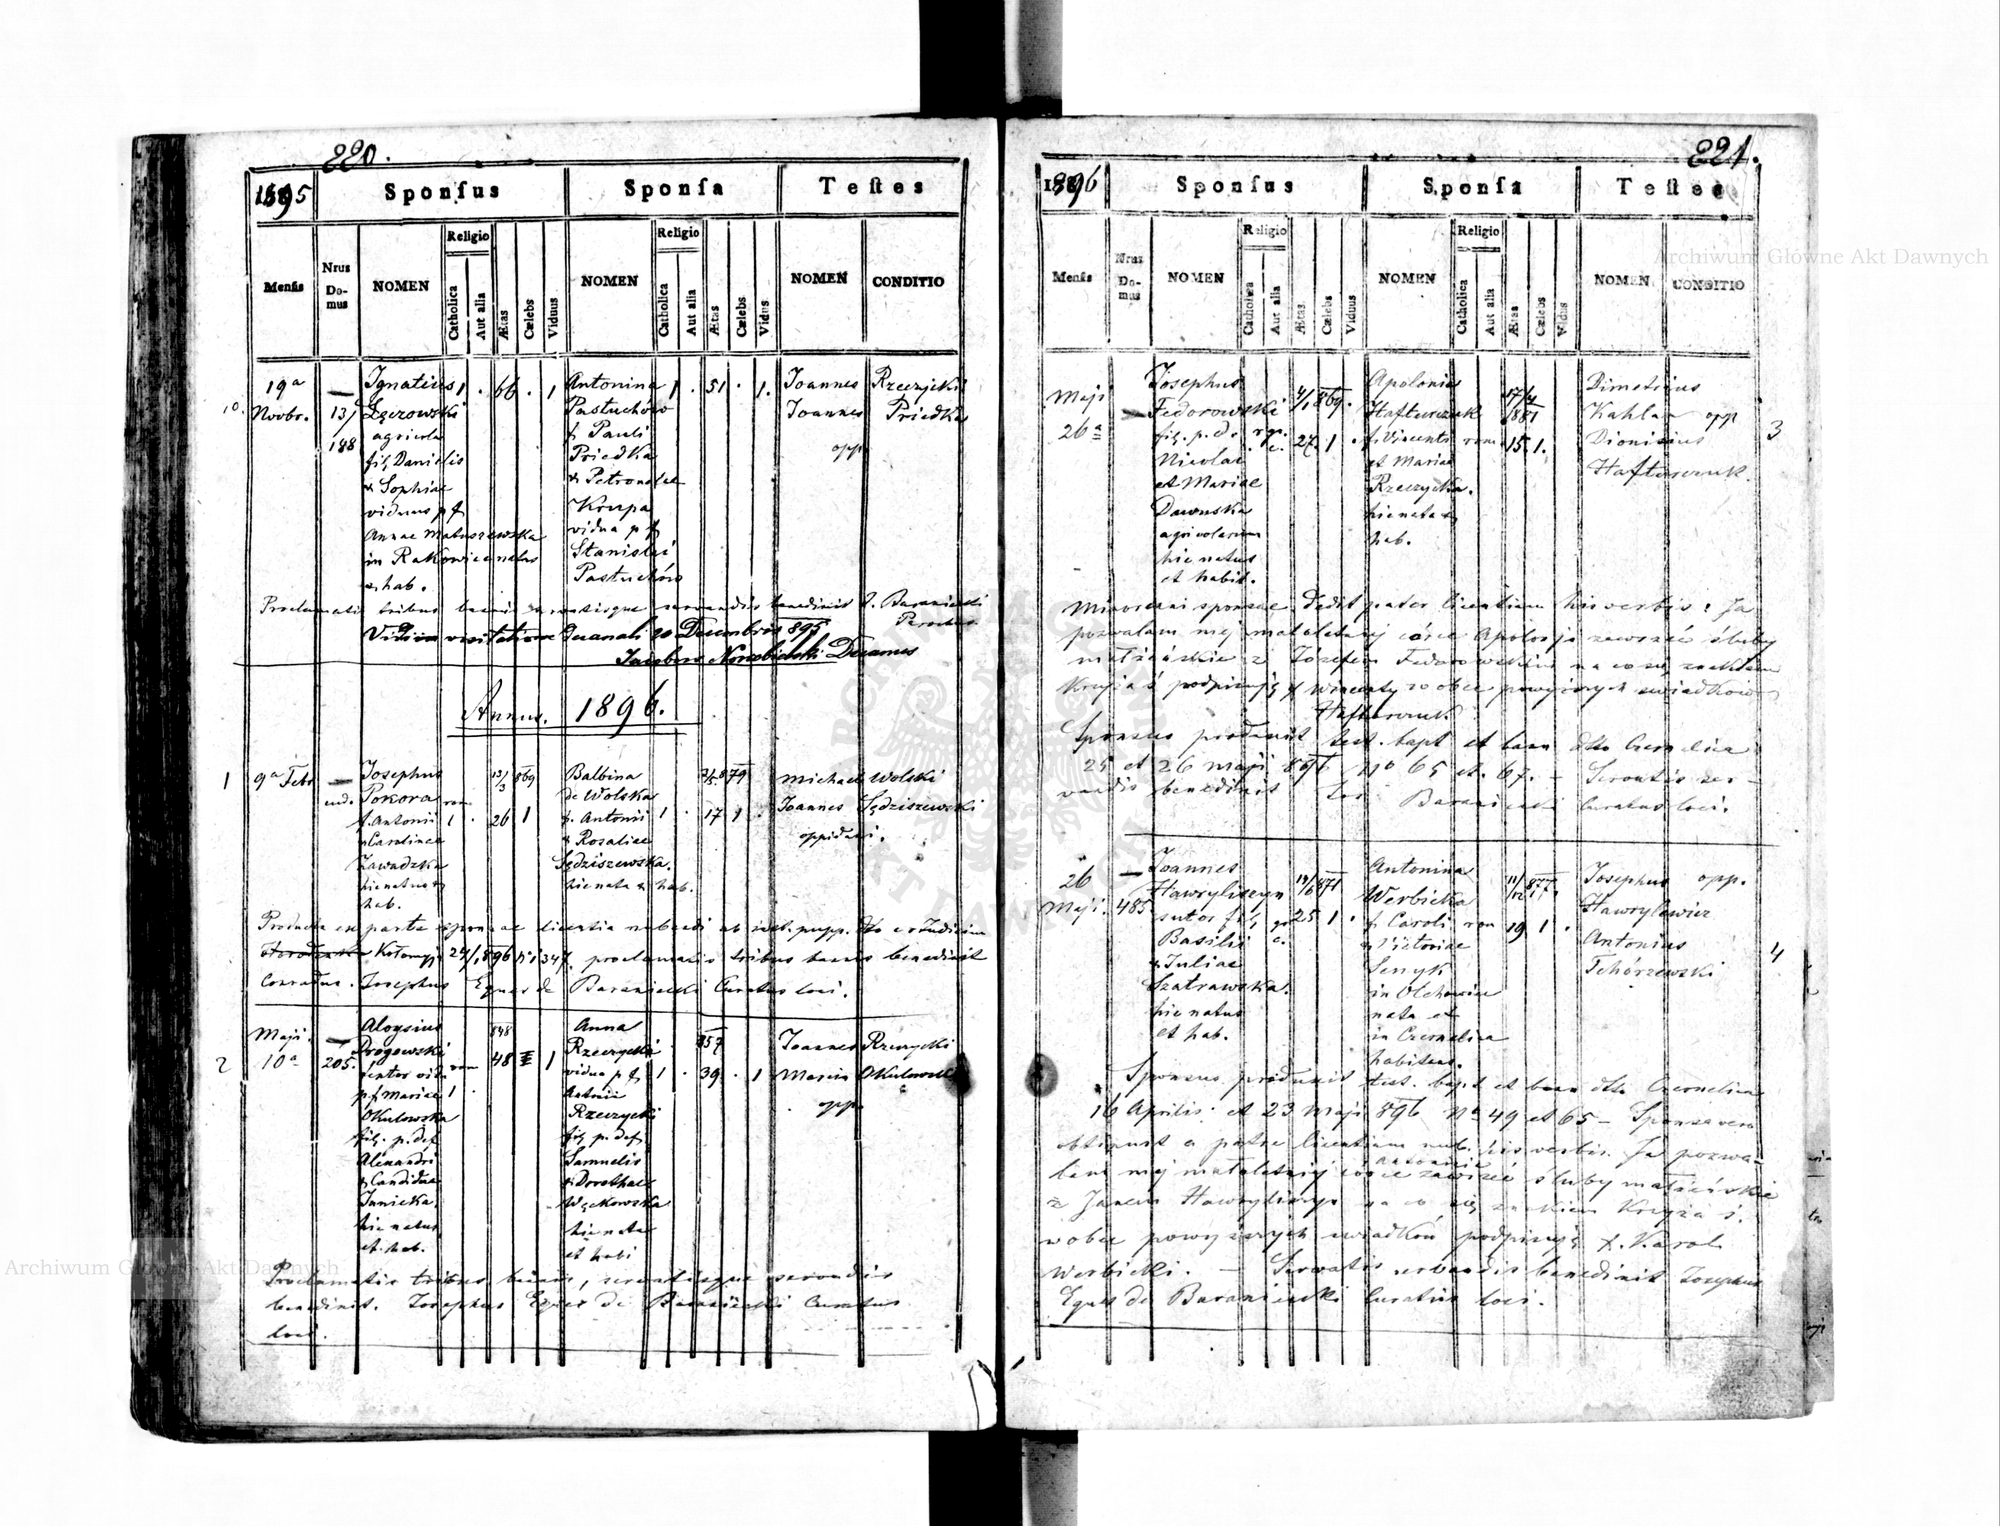 220.
1895 Sponsus Sponsa Testes
Mensis
Nrus Domus
NOMEN
Religio
Catholica
Aut alia
Ætas
Cælebs
Viduus
NOMEN
Religio
Catholica
Aut alia
Ætas
Cælebs
Vidus
NOMEN
CONDITIO
10.
19a
Novbr.
131/
148
Ignatius
Łęczowski
agricola
fil, Danielis
& Sophiae
viduus p f
Annae Matuszewska
in Rakowice natus
& hab.
1 . 66 . 1
Antonina
Pastuchów
f Pauli
Priedka
& Petronelae
Krupa
vidua p f
Stanislai
Pastuchów
1 . 51 . 1.
Joannes Rzeczycki
Joannes Priedka
opp
Proclamatis tribus bannis servatisque servandis benedixit J. Baraniecki
Parochus
Vidi in visitatione Decanali 20 Decembris 895
Decanus
Annus. 1896.
1
9a Febr
Josephus
Pokora
f. Antonii
& Carolinae
Zawadzka
hic natus &
hab.
rom
1 .
13/3 869
26 1
Balbina
de Wolska
f. Antonii
& Rosaliae
Sędziszewska.
hic nata & hab.
1 .
879
17 1 .
Michael Wolski
Joannes Sędziszewski
oppidani.
Producta ex parte sponsae licentia nubendi ab
Kołomyja 896 347, proclamatis tribus bannis benedixit
Josephus Eques de Baraniecki Curatus loci.
2
Maji
10a
205.
Aloysius
Drogowski
p. f Mariae
Okulowska
fil. p. def
Alexandri
& Candidae
Janicka
hic natus
et hab.
rom
1 .
848
48 1
Anna
Rzeczycki
vidua p f
Antonii
Rzeczycki
fil p. def,
Samuelis
& Dorotheae
Węckowska
hic nata
et habi
1 .
857
39 . 1
Joannes Rzeczycki
Marcin Okulowski
opp
Proclamatis tribus bannis, servatisque servandis
benedixit. Josephus Eques de Baraniecki Curatus
loci.
221.
1896 Sponsus Sponsa Testes
Mensis
Nrus Domus
NOMEN
Religio
Catholica
Aut alia
Ætas
Cælebs
Viduus
NOMEN
Religio
Catholica
Aut alia
Ætas
Cælebs
Vidus
NOMEN
CONDITIO
Maji
26a
Josephus
Fedorowski
fil. p. d.
Nicolai
et Mariae
Dawuska
agricolarum
hic natus
et habit.
gr.
c.
869.
27. 1 .
Apolonia
Hafturczuk
f. Vincenti
et Mariae
Rzeczycka.
hic nata &
hab.
rom
17/4
881
15. 1.
Dimetrius
Kahla opp
Dionisius
Hafturczuk.
3
Minorenni sponsae dedit pater licentiam his verbis: Ja
pozwalam mej małoletniej córce Apolonji zawrzeć śluby
małżeńskie z Józefem Fedorowskim na co się znakiem
Krzyża ś podpisuję X Wincenty wobec powyższych świadków
Hafturczuk.
Sponsus produxit test. bapt et bann dtto Czernelica
25 et 26 Maji 896 No 65 et 67. – Servatis ser-
vandis benedixit Jos Baraniecki Curatus loci.
26
Maji. 485
Joannes
Hawryliszyn
sutor fil,
Basilii
& Juliae
Szatrawska.
hic natus
et hab.
gr
c.
871
25 1 .
Antonina
Werbicka
f Caroli
& Victoriae
Senyk
in Olchowice
nata et
in Czernelica
habitans.
rom
877
19 1 .
Josephus opp.
Hawrylewicz
Antonius
Tchórzewski
4
Sponsus produxit test. bapt et bann dtto Czernelica
16 Aprilis et 23 Maji 896 No 49 et 65 – Sponsa vero
obtinuit a patre licentiam nub. his verbis. Ja pozwa-
lam mej małoletniej córce Antoninie zawrzeć śluby małżeńskie
z Janem Hawryliszyn na co się znakiem Krzyża ś.
wobec powyższych świadków podpisuję X. Karol
Werbicki. – Servatis servandis benedixit Josephus
Eques de Baraniecki Curatus loci.
Archiwum Główne Akt Dawnych
Archiwum Główne Akt Dawnych